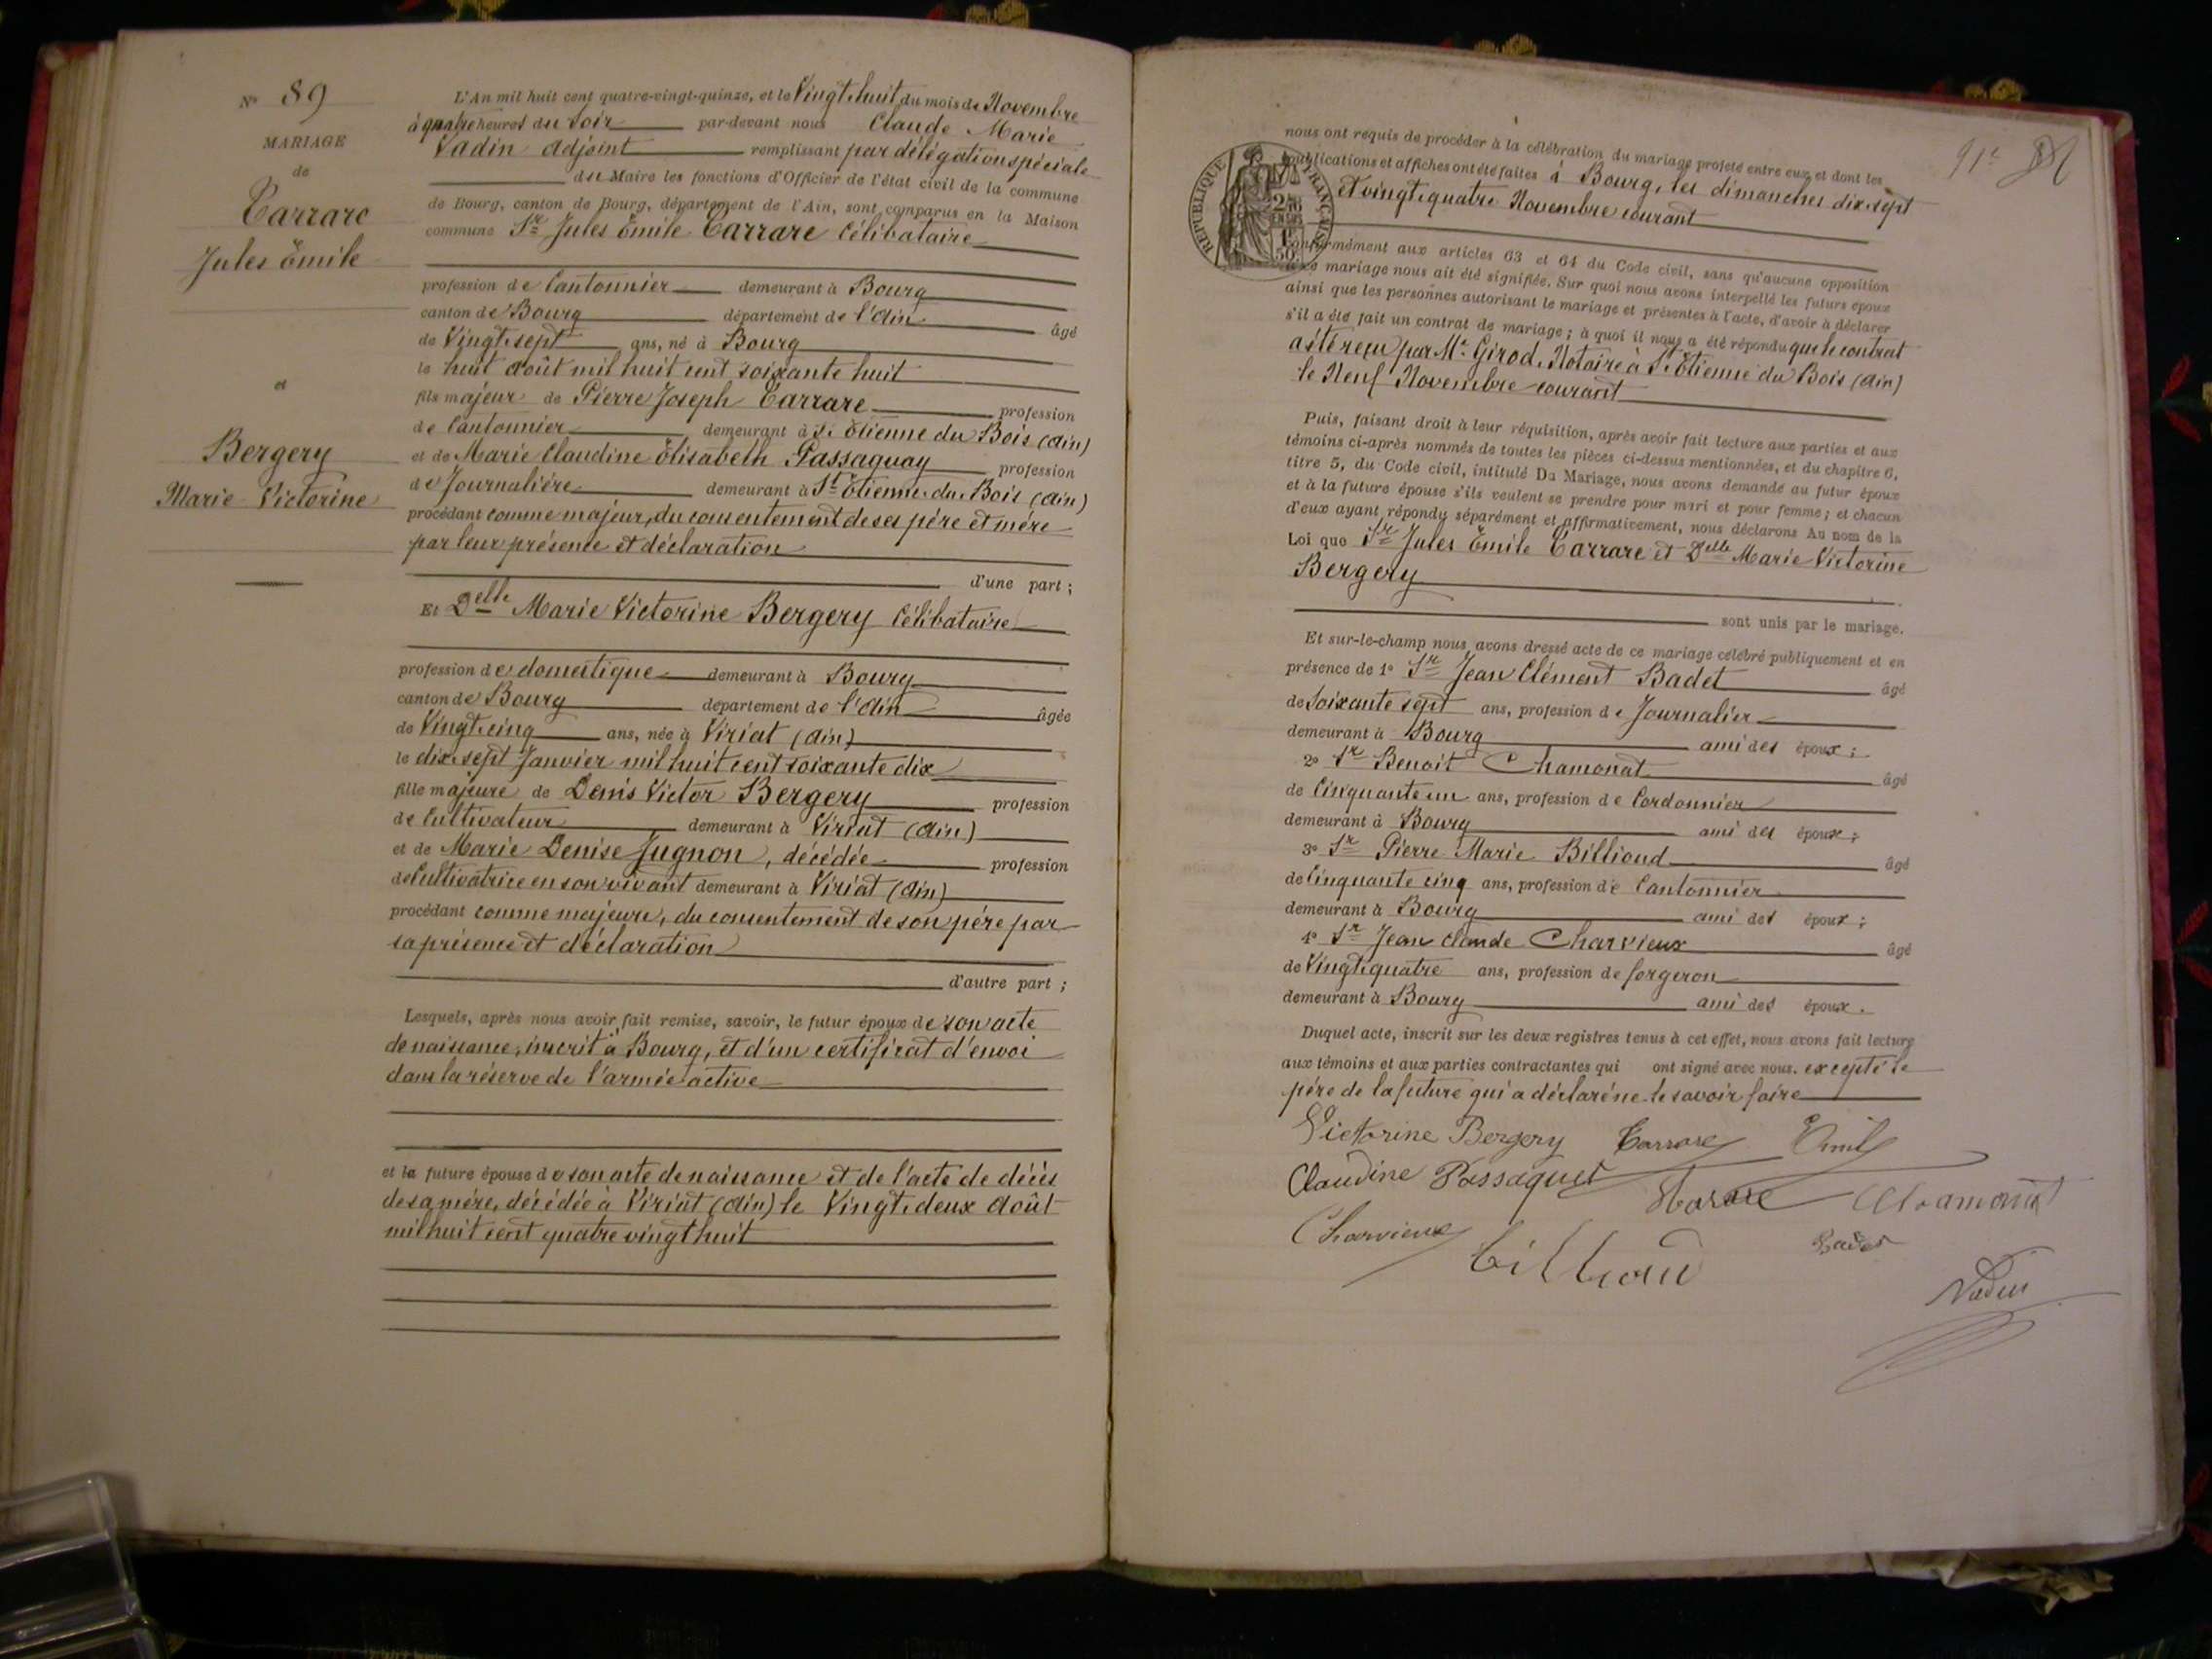 N° 89
MARIAGE
de
Carrare
Jules Émile
et
Bergery
Marie Victorine
L'An mil huit cent quatre-vingt-quinze, et le Vingt-huit du mois de Novembre
à quatre heures du soir par-devant nous Claude Marie
Vadin adjoint remplissant par délégation spéciale
du Maire les fonctions d'Officier de l'état civil de la commune
de Bourg, canton de Bourg, département de l'Ain, sont comparus en la Maison
commune Sr Jules Émile Carrare Célibataire
profession de Cantonnier demeurant à Bourg
canton de Bourg département de l'Ain âgé
de Vingt-sept ans, né à Bourg
le huit août mil huit cent soixante huit
fils majeur de Pierre Joseph Carrare profession
de Cantonnier demeurant à St Étienne du Bois (Ain)
et de Marie Claudine Élisabeth Passaquay profession
de Journalière demeurant à St Étienne du Bois (Ain)
procédant comme majeur, du consentement de ses père et mère
par leur présence et déclaration
d'une part ;
Et Delle Marie Victorine Bergery Célibataire
profession de domestique demeurant à Bourg
canton de Bourg département de l'Ain âgée
de Vingt-cinq ans, née à Viriat (Ain)
le dix-sept Janvier mil huit cent soixante dix
fille majeure de Denis Victor Bergery profession
de Cultivateur demeurant à Viriat (Ain)
et de Marie Denise Jugnon, décédée profession
de Cultivatrice en son vivant demeurant à Viriat (Ain)
procédant comme majeure, du consentement de son père par
sa présence et déclaration
d'autre part ;
Lesquels, après nous avoir fait remise, savoir, le futur époux de son acte
de naissance, inscrit à Bourg, et d'un certificat d'envoi
dans la réserve de l'armée active
et la future épouse de son acte de naissance et de l'acte de décès
de sa mère, décédée à Viriat (Ain) le Vingt-deux Août
mil huit cent quatre vingt huit
91e
RÉPUBLIQUE FRANÇAISE
nous ont requis de procéder à la célébration du mariage projeté entre eux et dont les
publications et affiches ont été faites à Bourg, les dimanches dix-sept
et vingt-quatre Novembre courant
conformément aux articles 63 et 64 du Code civil, sans qu'aucune opposition
à ce mariage nous ait été signifiée. Sur quoi nous avons interpellé les futurs époux
ainsi que les personnes autorisant le mariage et présentes à l'acte, d'avoir à déclarer
s'il a été fait un contrat de mariage ; à quoi il nous a été répondu que le contrat
a été reçu par Me Girod, Notaire à St Étienne du Bois (Ain)
le Neuf Novembre courant
Puis, faisant droit à leur réquisition, après avoir fait lecture aux parties et aux
témoins ci-après nommés de toutes les pièces ci-dessus mentionnées, et du chapitre 6,
titre 5, du Code civil, intitulé Du Mariage, nous avons demandé au futur époux
et à la future épouse s'ils veulent se prendre pour mari et pour femme ; et chacun
d'eux ayant répondu séparément et affirmativement, nous déclarons Au nom de la
Loi que Sr Jules Émile Carrare et Delle Marie Victorine
Bergery
sont unis par le mariage.
Et sur-le-champ nous avons dressé acte de ce mariage célébré publiquement et en
présence de 1° Sr Jean Clément Badet âgé
de Soixante sept ans, profession de Journalier
demeurant à Bourg ami des époux ;
2° Sr Benoit Chamonat âgé
de Cinquante un ans, profession de Cordonnier
demeurant à Bourg ami des époux ;
3° Sr Pierre Marie Billioud âgé
de Cinquante cinq ans, profession de Cantonnier
demeurant à Bourg ami des époux ;
4° Sr Jean Claude Charvieux âgé
de Vingt-quatre ans, profession de forgeron
demeurant à Bourg ami des époux.
Duquel acte, inscrit sur les deux registres tenus à cet effet, nous avons fait lecture
aux témoins et aux parties contractantes qui ont signé avec nous. excepté le
père de la future qui a déclaré ne le savoir faire
Victorine Bergery Carrare Émile
Claudine Passaquet Carrare Chamonat
Charvieux Billioud Badet
Vadin